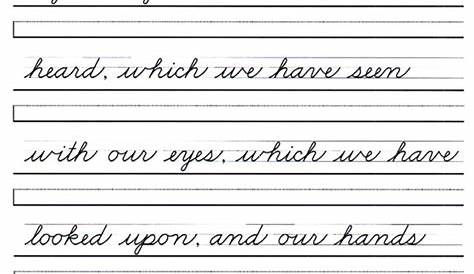 heard, which we have seen
with our eyes, which we have
looked upon, and our hands